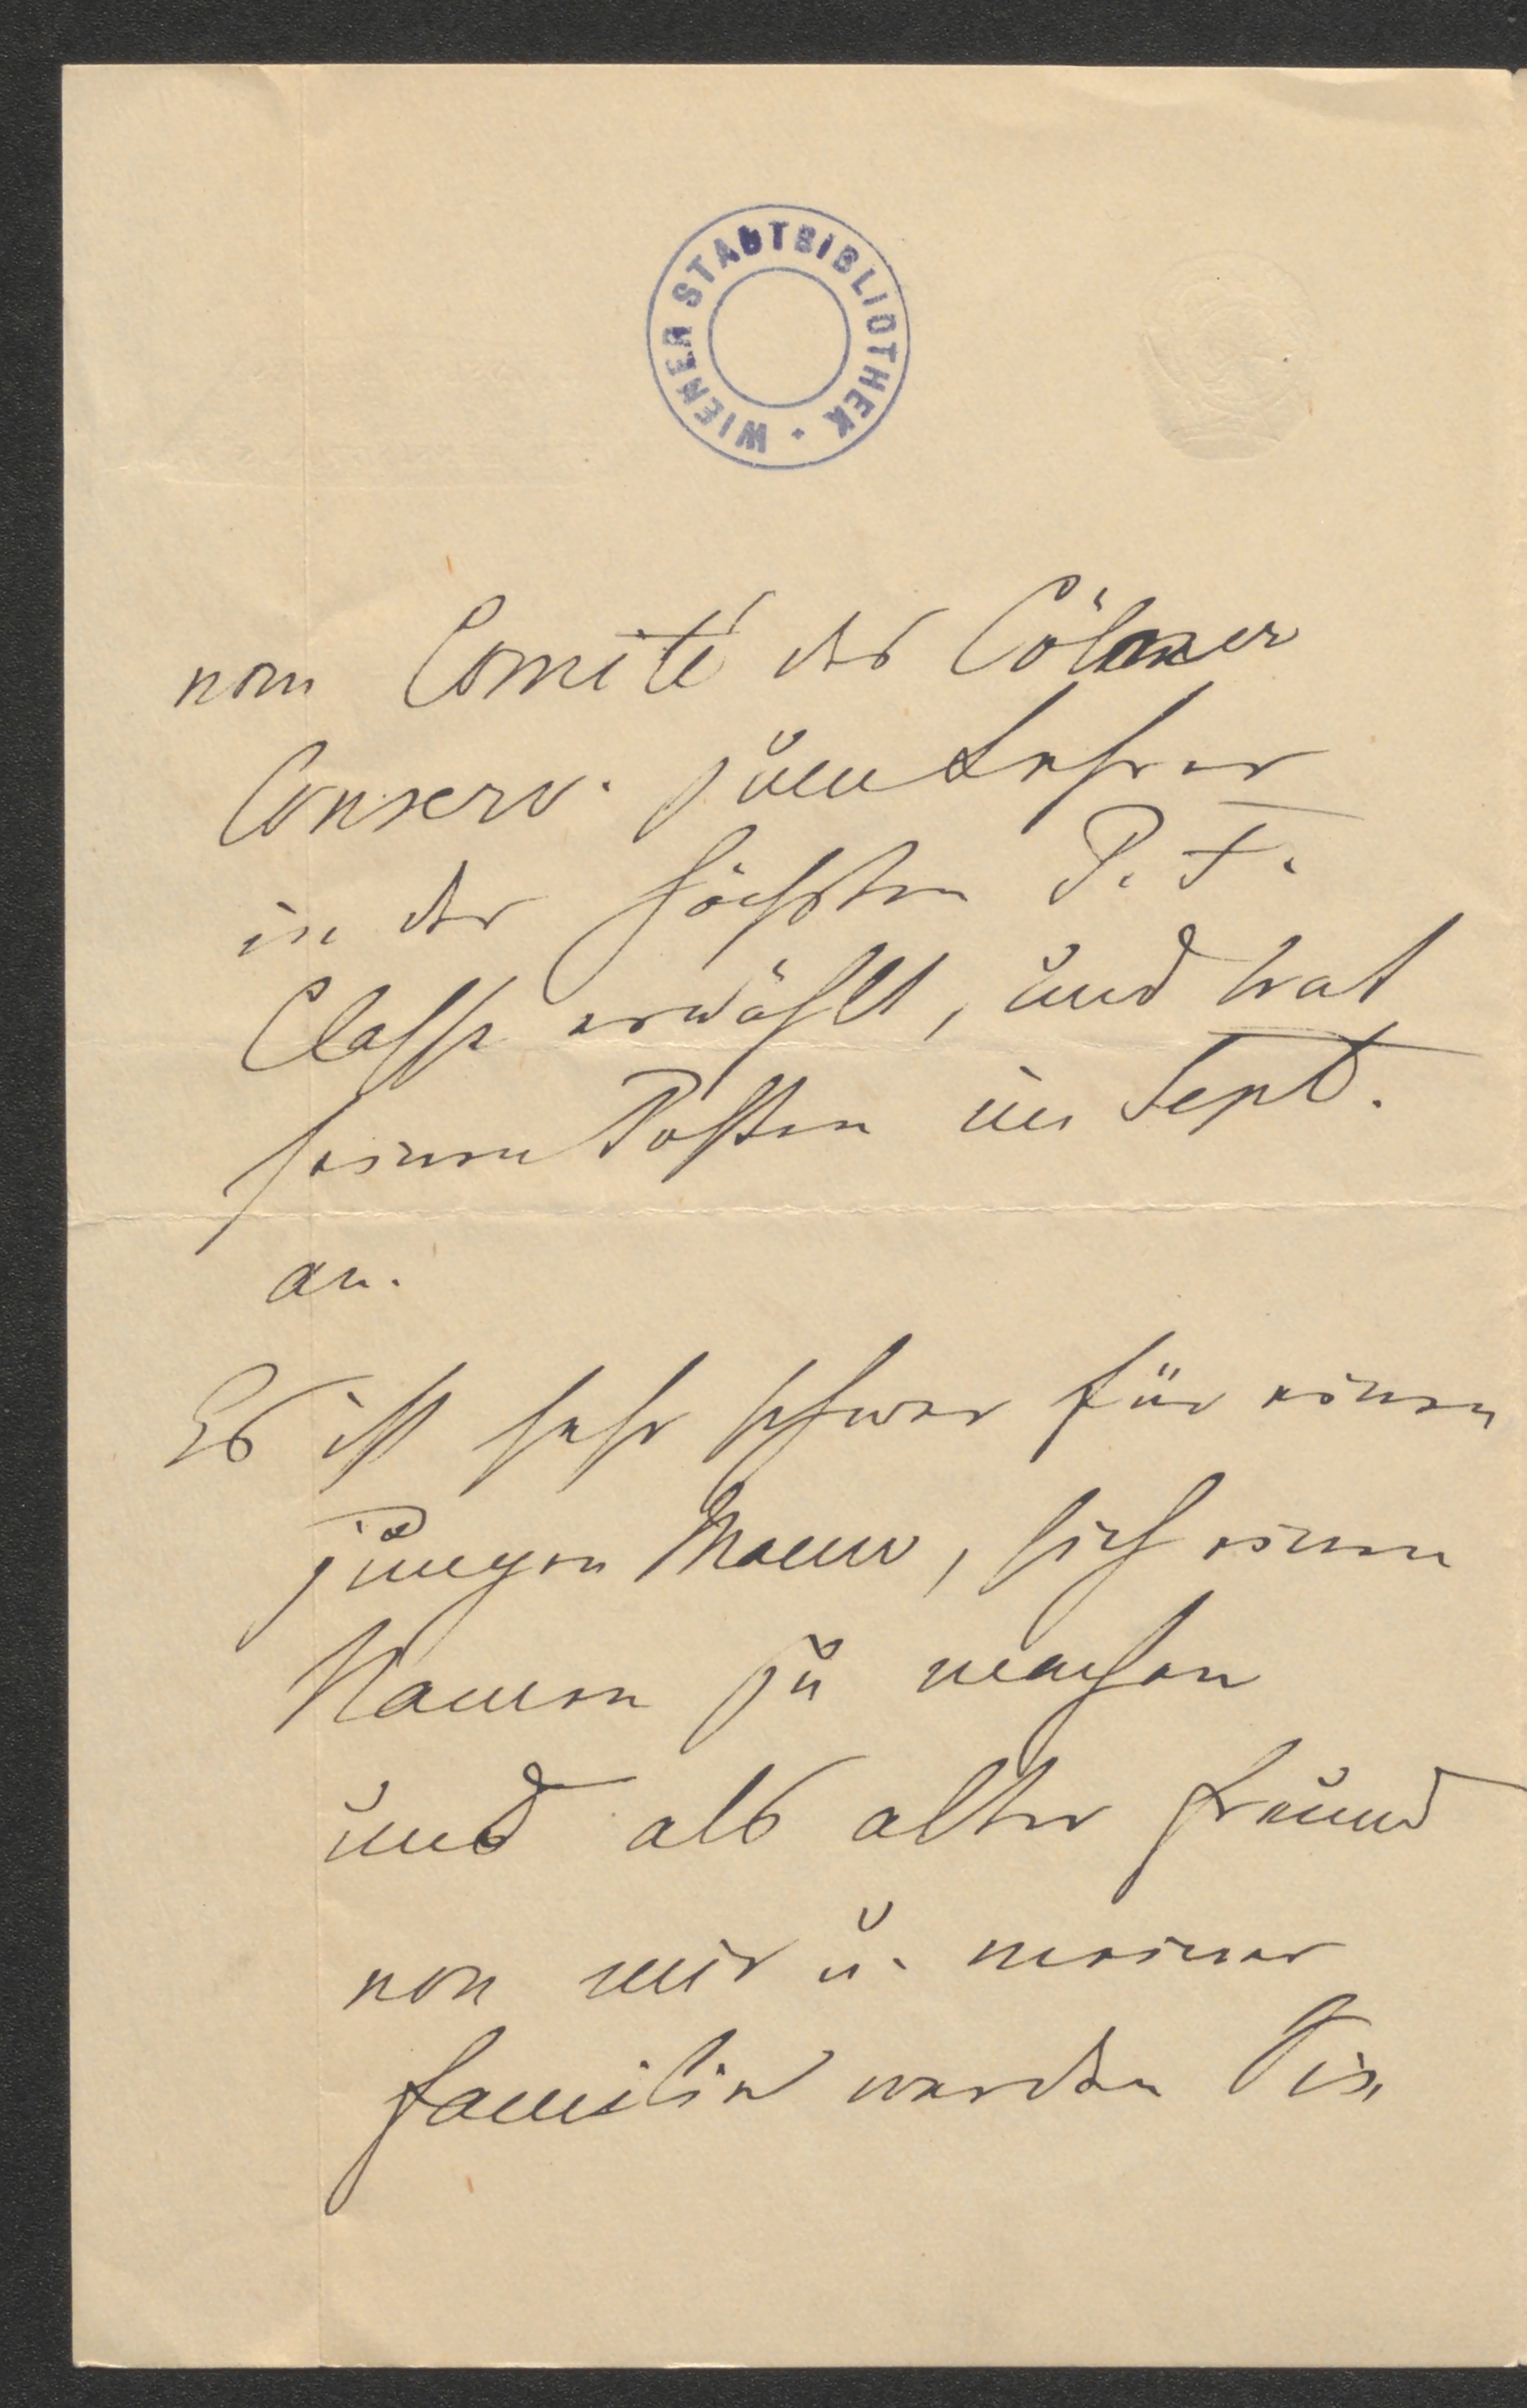 WIENER STADTBIBLIOTHEK
vom Comité des Cölner
Conserv. zum Lehrer
in der höchsten P. F.
Classe erwählt, und trat
seinen Posten im Sept.
an.
Es ist sehr schwer für einen
jungen Mann, sich einen
Namen zu machen
und als alter Freund
von mir u. meiner
Familie werden Sie,